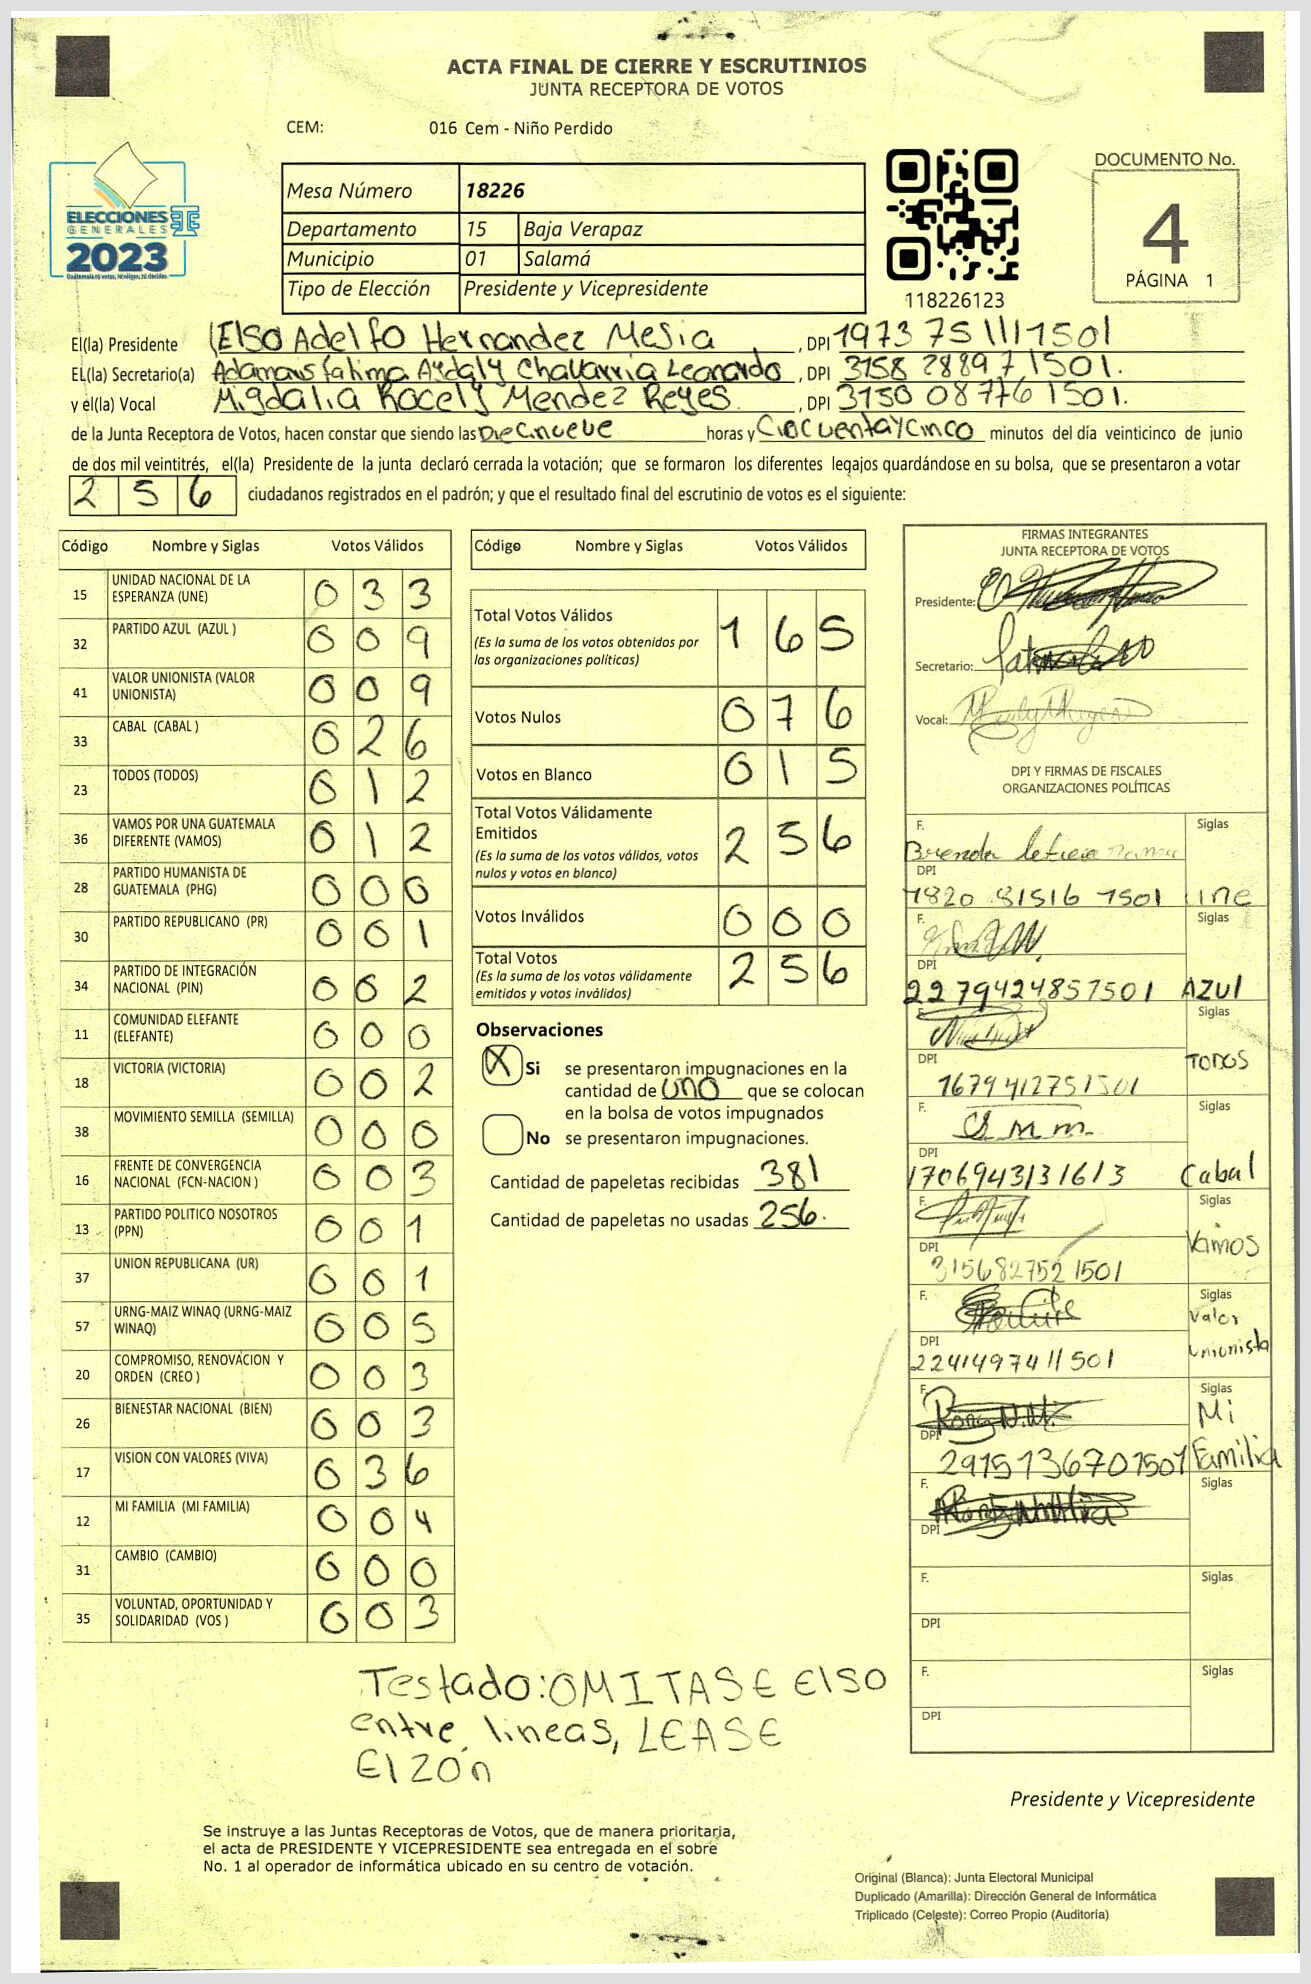 ACTA FINAL DE CIERRE Y ESCRUTINIOS
JUNTA RECEPTORA DE VOTOS
CEM: 016 Cem - Niño Perdido
ELECCIONES
GENERALES
2023
Mesa Número 18226
Departamento 15 Baja Verapaz
Municipio 01 Salamá
Tipo de Elección Presidente y Vicepresidente
118226123
DOCUMENTO No.
4
PÁGINA 1
El(la) Presidente Elso Adelfo Hernandez Mesia, DPI 1973 75111 1501
El(la) Secretario(a) Fatima Aydaly Chavarria Leonardo, DPI 3158 28897 1501.
y el(la) Vocal Migdalia Rocely Mendez Reyes, DPI 3150 08776 1501.
de la Junta Receptora de Votos, hacen constar que siendo las Diecinueve horas y CincuentayCinco minutos del día veinticinco de junio
de dos mil veintitrés, el(la) Presidente de la junta declaró cerrada la votación; que se formaron los diferentes legajos guardándose en su bolsa, que se presentaron a votar
2 5 6 ciudadanos registrados en el padrón; y que el resultado final del escrutinio de votos es el siguiente:
Código Nombre y Siglas Votos Válidos
15 UNIDAD NACIONAL DE LA ESPERANZA (UNE) 0 3 3
32 PARTIDO AZUL (AZUL ) 0 0 9
41 VALOR UNIONISTA (VALOR UNIONISTA) 0 0 9
33 CABAL (CABAL ) 0 2 6
23 TODOS (TODOS) 0 1 2
36 VAMOS POR UNA GUATEMALA DIFERENTE (VAMOS) 0 1 2
28 PARTIDO HUMANISTA DE GUATEMALA (PHG) 0 0 0
30 PARTIDO REPUBLICANO (PR) 0 0 1
34 PARTIDO DE INTEGRACIÓN NACIONAL (PIN) 0 0 2
11 COMUNIDAD ELEFANTE (ELEFANTE) 0 0 0
18 VICTORIA (VICTORIA) 0 0 2
38 MOVIMIENTO SEMILLA (SEMILLA) 0 0 0
16 FRENTE DE CONVERGENCIA NACIONAL (FCN-NACION ) 0 0 3
13 PARTIDO POLITICO NOSOTROS (PPN) 0 0 1
37 UNION REPUBLICANA (UR) 0 0 1
57 URNG-MAIZ WINAQ (URNG-MAIZ WINAQ) 0 0 5
20 COMPROMISO, RENOVACION Y ORDEN (CREO ) 0 0 3
26 BIENESTAR NACIONAL (BIEN) 0 0 3
17 VISION CON VALORES (VIVA) 0 3 6
12 MI FAMILIA (MI FAMILIA) 0 0 4
31 CAMBIO (CAMBIO) 0 0 0
35 VOLUNTAD, OPORTUNIDAD Y SOLIDARIDAD (VOS ) 0 0 3
Código Nombre y Siglas Votos Válidos
Total Votos Válidos 1 6 5
(Es la suma de los votos obtenidos por
las organizaciones políticas)
Votos Nulos 0 7 6
Votos en Blanco 0 1 5
Total Votos Válidamente
Emitidos 2 5 6
(Es la suma de los votos válidos, votos
nulos y votos en blanco)
Votos Inválidos 0 0 0
Total Votos 2 5 6
(Es la suma de los votos válidamente
emitidos y votos inválidos)
Observaciones
X Si se presentaron impugnaciones en la
cantidad de uno que se colocan
en la bolsa de votos impugnados
No se presentaron impugnaciones.
Cantidad de papeletas recibidas 381
Cantidad de papeletas no usadas 256.
FIRMAS INTEGRANTES
JUNTA RECEPTORA DE VOTOS
Presidente:
Secretario:
Vocal:
DPI Y FIRMAS DE FISCALES
ORGANIZACIONES POLÍTICAS
F. Brenda leticia Siglas
DPI 1820 81516 1501 une
F. Siglas
DPI 2279424857501 AZUl
F. Siglas
DPI 1679412751501 TODOS
F. Siglas
DPI 1706943131613 Cabal
F. Siglas
DPI 3156827521501 Vamos
F. Siglas
DPI 2241497411501 Valor unionista
F. Siglas
DPI 2915136701501 Mi Familia
F. Siglas
DPI
F. Siglas
DPI
F. Siglas
DPI
Testado: OMITASE ElSO
entre lineas, LEASE
ElZon
Presidente y Vicepresidente
Se instruye a las Juntas Receptoras de Votos, que de manera prioritaria,
el acta de PRESIDENTE Y VICEPRESIDENTE sea entregada en el sobre
No. 1 al operador de informática ubicado en su centro de votación.
Original (Blanca): Junta Electoral Municipal
Duplicado (Amarilla): Dirección General de Informática
Triplicado (Celeste): Correo Propio (Auditoría)